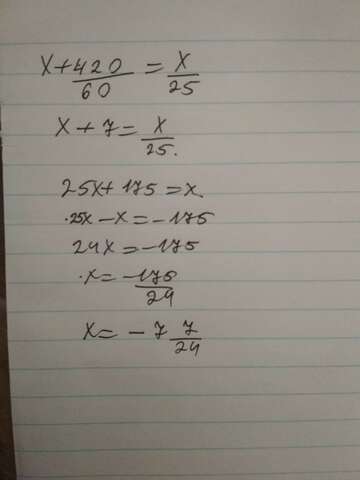 x + 420/60 = x/25
x + 7 = x/25.
25x + 175 = x
25x - x = -175
24x = -175
x = -175/24
x = -7 7/24